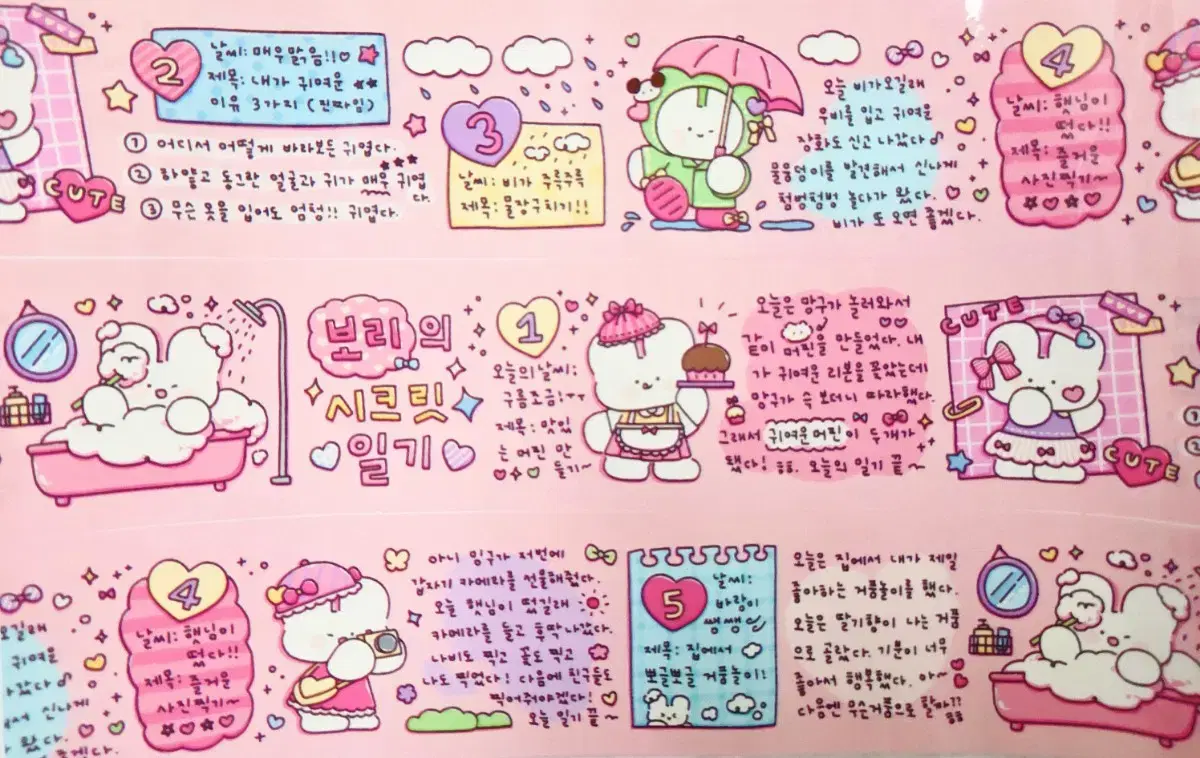 2
날씨: 매우맑음!!♡
제목: 내가 귀여운
이유 3가지 (진짜임)
① 어디서 어떻게 바라보든 귀엽다.
② 하얗고 동그란 얼굴과 귀가 매우 귀엽
다.
③ 무슨 옷을 입어도 엄청!! 귀엽다.
CUTE
3
날씨: 비가 주륵주륵
제목: 물장구치기!!
오늘 비가오길래
우비를 입고 귀여운
장화도 신고 나갔다♪
물웅덩이를 발견해서 신나게
첨벙첨벙 놀다가 왔다.
비가 또 오면 좋겠다.
4
날씨: 햇님이
떴다!!
제목: 즐거운
사진찍기~
보리의
시크릿
일기
1
오늘의날씨:
구름조금;ㅜㅜ
제목: 맛있
는 머핀 만
들기~
오늘은 망구가 놀러와서
같이 머핀을 만들었다. 내
가 귀여운 리본을 꽂았는데
망구가 쓱 보더니 따라했다.
그래서 귀여운머핀이 두개가
됐다! 끝. 오늘의 일기 끝~
CUTE
CUTE
오길래
귀여운
나갔다♪
서 신나게
왔다.
좋겠다.
4
날씨: 햇님이
떴다!!
제목: 즐거운
사진찍기~
아니 망구가 저번에
갑자기 카메라를 선물해줬다.
오늘 햇님이 떴길래
카메라를 들고 후딱나갔다.
나비도 찍고 꽃도 찍고
나도 찍었다! 다음에 친구들도
찍어줘야겠다!
오늘 일기 끝~
5
날씨:
바람이
쌩쌩
제목: 집에서
뽀글뽀글 거품놀이!
오늘은 집에서 내가 제일
좋아하는 거품놀이를 했다.
오늘은 딸기향이 나는 거품
으로 골랐다. 기분이 너무
좋아서 행복했다. 아~
다음엔 무슨거품으로 할까??